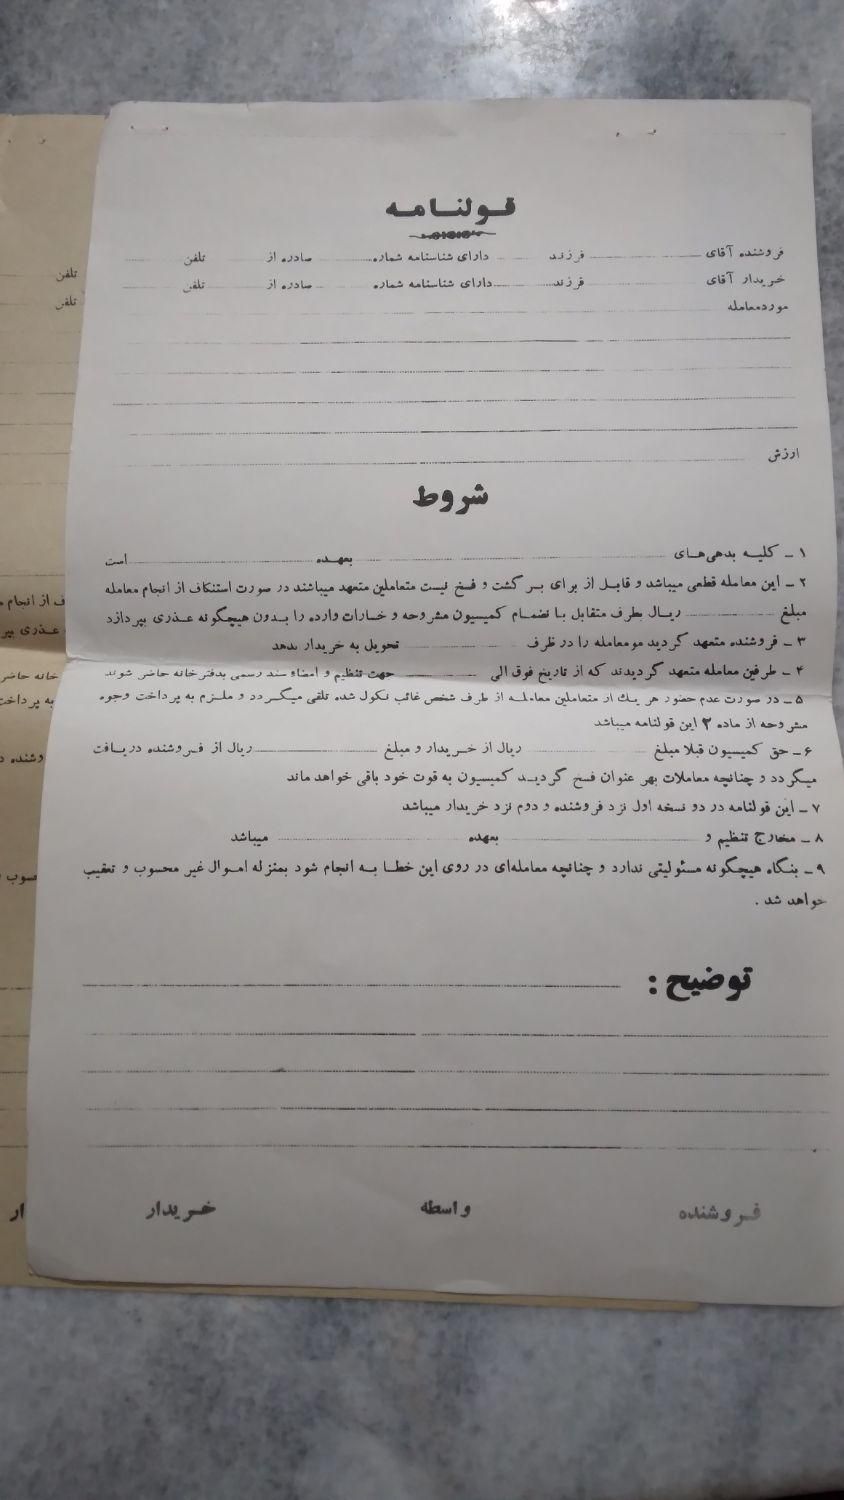 قولنامه
فروشنده آقای فرزند دارای شناسنامه شماره صادره از تلفن
خریدار آقای فرزند دارای شناسنامه شماره صادره از تلفن
مورد معامله
ارزش
شروط
۱ ـ کلیه بدهی‌های بعهده است
۲ ـ این معامله قطعی میباشد و قابل از برای برگشت و فسخ نیست متعاملین متعهد میباشند در صورت استنکاف از انجام معامله
مبلغ ریال بطرف متقابل با نضمام کمیسیون مشروحه و خسارات وارده را بدون هیچگونه عذری بپردازد
۳ ـ فروشنده متعهد گردید مومعامله را در ظرف تحویل به خریدار بدهد
۴ ـ طرفین معامله متعهد گردیدند که از تاریخ فوق الی جهت تنظیم و امضاء سند رسمی بدفترخانه حاضر شوند
۵ ـ در صورت عدم حضور هر یک از متعاملین معامله از طرف شخص غائب نکول شده تلقی میگردد و ملزم به پرداخت وجوه
مشروحه از ماده ۲ این قولنامه میباشد
۶ ـ حق کمیسیون قبلا مبلغ ریال از خریدار و مبلغ ریال از فروشنده دریافت
میگردد و چنانچه معاملات بهر عنوان فسخ گردید کمیسیون به قوت خود باقی خواهد ماند
۷ ـ این قولنامه در دو نسخه اول نزد فروشنده و دوم نزد خریدار میباشد
۸ ـ مخارج تنظیم و بعهده میباشد
۹ ـ بنگاه هیچگونه مسئولیتی ندارد و چنانچه معامله‌ای در روی این خطا به انجام شود بمنزله اموال غیر محسوب و تعقیب
خواهد شد .
توضیح :
فروشنده واسطه خریدار
تلفن
تلفن